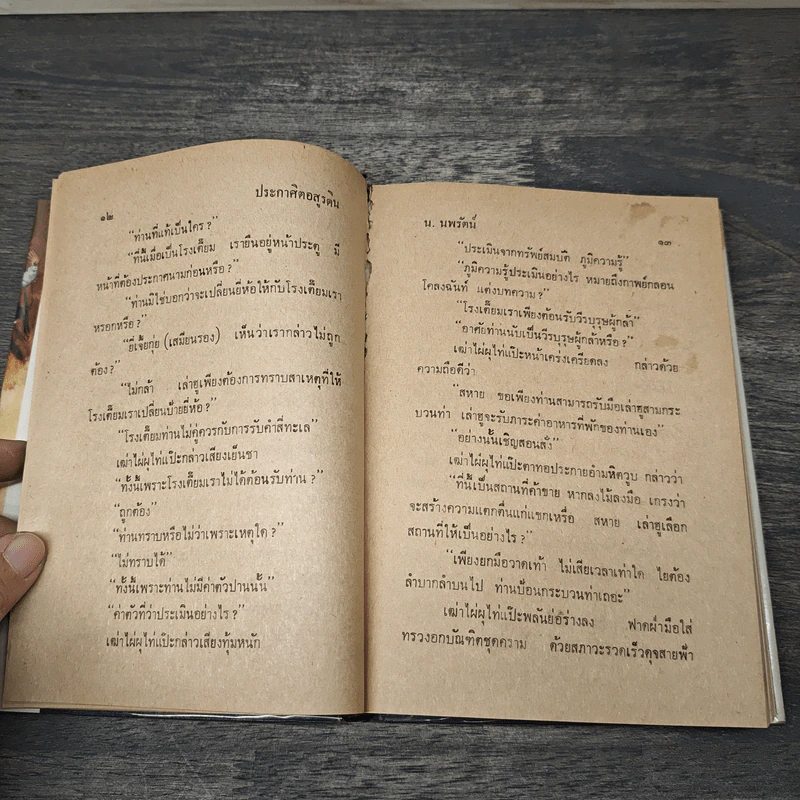 ๑๒
ประกาศิตอสูรดิน
“ท่านที่แท้เป็นใคร ?”
“ที่นี้เมื่อเป็นโรงเตี๊ยม เรายืนอยู่หน้าประตู มี
หน้าที่ต้องประกาศนามก่อนหรือ ?”
“ท่านมิใช่บอกว่าจะเปลี่ยนยี่ห้อให้กับโรงเตี๊ยมเรา
หรอกหรือ ?”
“ยี่เจียกุ่ย (เสมียนรอง) เห็นว่าเรากล่าวไม่ถูก
ต้อง ?”
“ไม่กล้า เล่าฮูเพียงต้องการทราบสาเหตุที่ให้
โรงเตี๊ยมเราเปลี่ยนป้ายยี่ห้อ ?”
“โรงเตี๊ยมท่านไม่คู่ควรกับการรับคำสี่ทะเล”
เฒ่าไผ่ผุไท่แป๊ะกล่าวเสียงเย็นชา
“ทั้งนี้เพราะโรงเตี๊ยมเราไม่ได้ต้อนรับท่าน ?”
“ถูกต้อง”
“ท่านทราบหรือไม่ว่าเพราะเหตุใด ?”
“ไม่ทราบได้”
“ทั้งนี้เพราะท่านไม่มีค่าตัวปานนั้น”
“ค่าตัวที่ว่าประเมินอย่างไร ?”
เฒ่าไผ่ผุไท่แป๊ะกล่าวเสียงทุ้มหนัก
น. นพรัตน์
๑๓
“ประเมินจากทรัพย์สมบัติ ภูมิความรู้”
“ภูมิความรู้ประเมินอย่างไร หมายถึงกาพย์กลอน
โคลงฉันท์ แต่งบทความ ?”
“โรงเตี๊ยมเราเพียงต้อนรับวีรบุรุษผู้กล้า”
“อาศัยท่านนับเป็นวีรบุรุษผู้กล้าหรือ ?”
เฒ่าไผ่ผุไท่แป๊ะหน้าเคร่งเครียดลง กล่าวด้วย
ความถือดีว่า
“สหาย ขอเพียงท่านสามารถรับมือเล่าฮูสามกระ
บวนท่า เล่าฮูจะรับภาระค่าอาหารที่พักของท่านเอง”
“อย่างนั้นเชิญสอนสั่ง”
เฒ่าไผ่ผุไท่แป๊ะตาทอประกายอำมหิตวูบ กล่าวว่า
“ที่นี้เป็นสถานที่ค้าขาย หากลงไม้ลงมือ เกรงว่า
จะสร้างความแตกตื่นแก่แขกเหรื่อ สหาย เล่าฮูเลือก
สถานที่ให้เป็นอย่างไร ?”
“เพียงยกมือวาดเท้า ไม่เสียเวลาเท่าใด ไยต้อง
ลำบากลำบนไป ท่านป้อนกระบวนท่าเถอะ”
เฒ่าไผ่ผุไท่แป๊ะพลันย่อร่างลง ฟาดฝ่ามือใส่
ทรวงอกบัณฑิตชุดคราม ด้วยสภาวะรวดเร็วดุจสายฟ้า